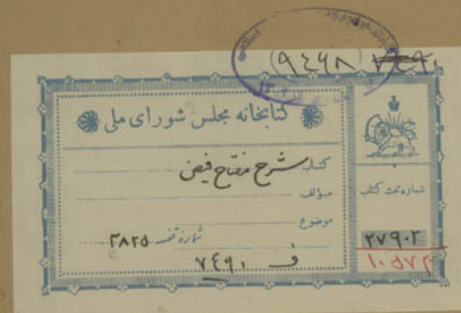 (۹۴۶۸) ۷۴۹۰
کتابخانه مجلس شورای ملی
کتاب شرح مفتاح فیض
مؤلف
موضوع
شماره قفسه ۳۸۲۵
ف ۷۴۹۰
شماره ثبت کتاب
۲۷۹۰۲
۱۰۵۷۲